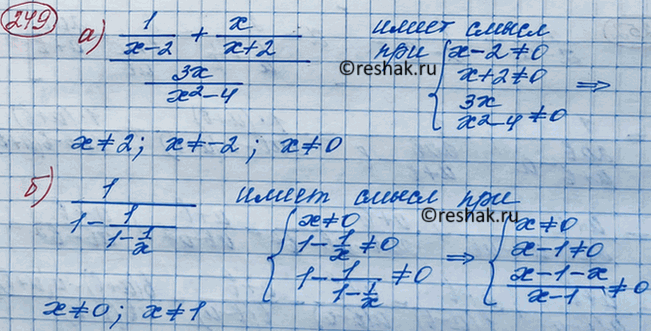 249
а) (1/(x-2) + x/(x+2)) / (3x/(x²-4)) имеет смысл
при { x-2≠0
x+2≠0 ⇒
3x/(x²-4) ≠0
©reshak.ru
x≠2; x≠-2; x≠0
б) 1/(1-1/(1-1/x)) имеет смысл при
{ x≠0 ⇒ { x≠0
1-1/x ≠0 x-1≠0
1-1/(1-1/x) ≠0 (x-1-x)/(x-1) ≠0
©reshak.ru
x≠0; x≠1